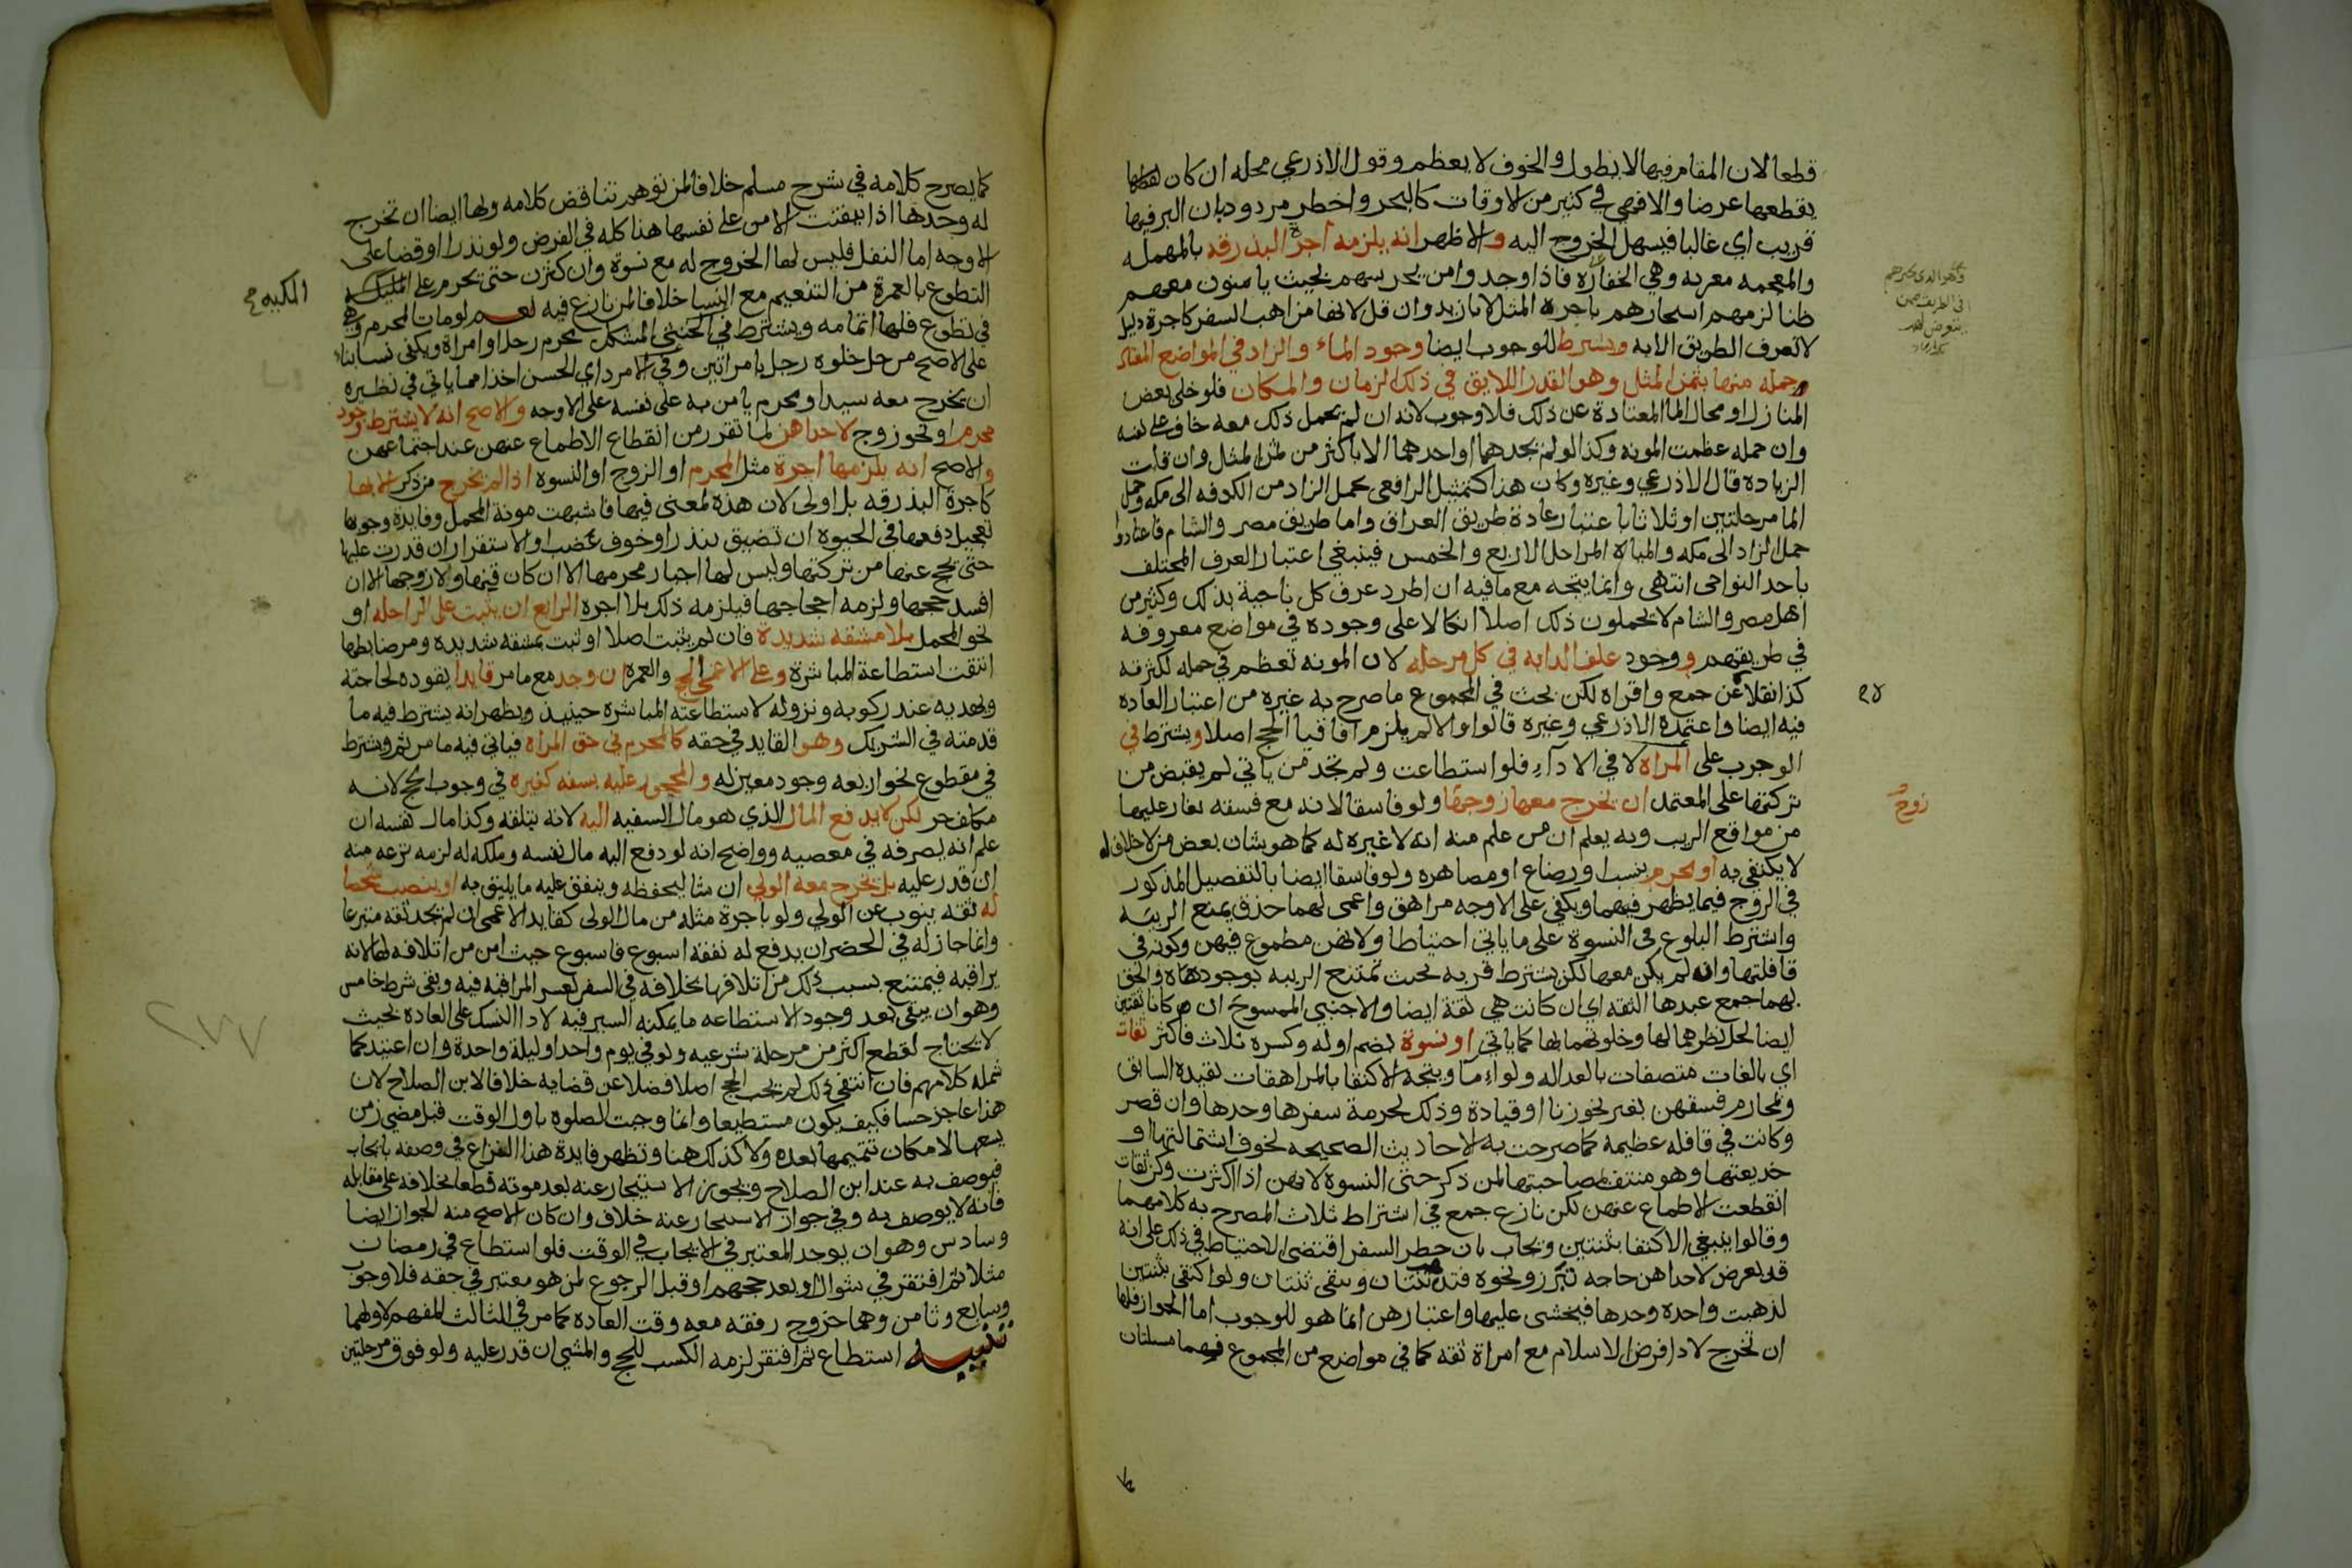 قطعا لان المقام فيها لا يطول والخوف لا يعظم وقول الاذرعي محله ان كان
يقطعها عرضا والا فهي في كثير من الاوقات كالبحر واخطر مردود بان البر فيها
قريب اي غالبا فيسهل الخروج اليه والاظهر انه يلزمه اجرة البذرقه بالمهمله
والمعجمه معربه وهي الخفارة فاذا وجدوا من يحرسهم بحيث يامنون معهم
ظنا لزمهم استيجارهم باجرة المثل لا بازيد وان قل لانها من اهب السفر كاجرة دليل
لا تعرف الطريق الا به ويشترط للوجوب ايضا وجود الماء والزاد في المواضع المعتاد
حمله منها بثمن المثل وهو القدر اللايق في ذلك الزمان والمكان فلو خلي بعض
المنازل او محال الما المعتادة عن ذلك فلا وجوب لانه ان لم يحمل ذلك معه خاف على نفسه
وان حمله عظمت المونه وكذا لو لم يجدهما او احدهما الا باكثر من ثمن المثل وان قلت
الزيادة قال الاذرعي وغيره وكان هذا كتمثيل الرافعي بحمل الزاد من الكوفه الى مكه وحمل
الما مرحلتين او ثلاثا باعتبار عادة طريق العراق واما طريق مصر والشام فاعتادوا
حمل الزاد الى مكه والمياه المراحل الاربع والخمس فينبغي اعتبار العرف المختلف
باحد النواحي انتهى وانما يتجه مع ما فيه ان اطرد عرف كل ناحية بذلك وكثير من
اهل مصر والشام لا يحملون ذلك اصلا اتكالا على وجوده في مواضع معروفه
في طريقهم ووجود علف الدابه في كل مرحله لان المونه تعظم في حمله لكثرته
كذا نقلا عن جمع واقراه لكن بحث في المجموع ما صرح به غيره من اعتبار العاده
فيه ايضا واعتمده الاذرعي وغيره قالوا والا لم يلزم افاقيا الحج اصلا ويشترط في
الوجوب على المراة لا في الاداء فلو استطاعت ولم تجد من ياتي لم يقبض من
تركتها على المعتمد ان يخرج معها زوجها ولو فاسقا لانه مع فسقه يغار عليها
من مواقع الريب وبه يعلم ان من علم منه انه لا غيره له كما هو شان بعض من لا خلاق له
لا يكتفي به او محرم بنسب او رضاع او مصاهره ولو فاسقا ايضا بالتفصيل المذكور
في الزوج فيما يظهر فيهما ويكفي على الاوجه مراهق واعمى لهما حذق يمنع الريبه
واشترط البلوغ في النسوة على ما ياتي احتياطا ولانهن مطموع فيهن وكونه في
قافلتها وان لم يكن معها لكن يشترط قربه بحيث تمتنع الريبه بوجوده والحق
بهما جمع عبدها الثقه اي ان كانت هي ثقة ايضا والاجنبي الممسوح ان كانا ثقتين
ايضا لحل نظرهما لها وخلوتهما بها كما ياتي او نسوة بضم اوله وكسره ثلاث فاكثر ثقات
اي بالغات متصفات بالعداله ولو اماء ويتجه الاكتفا بالمراهقات بقيده السابق
وبمحارم فسقهن بغير نحو زنا او قيادة وذلك لحرمة سفرها وحدها وان قصر
وكانت في قافله عظيمة كما صرحت به الاحاديث الصحيحه لخوف استمالتها او
خديعتها وهو منتف بمصاحبتها لمن ذكر حتى النسوة لانهن اذا كثرن وكن ثقات
انقطعت الاطماع عنهن لكن نازع جمع في اشتراط ثلاث المصرح به كلامهما
وقالوا ينبغي الاكتفا بثنتين ويجاب بان خطر السفر اقتضى الاحتياط في ذلك على انه
قد يعرض لاحداهن حاجه تبرز ونحوه فتذهب ثنتان وتبقى ثنتان ولو اكتفي بثنتين
لذهبت واحده وحدها فيخشى عليها واعتبارهن انما هو للوجوب اما الجواز فلها
ان تخرج لادا فرض الاسلام مع امراة ثقه كما في مواضع من المجموع فهما مسئلتان
وهو الذي
في الطريق
زوج
كما يصرح كلامه في شرح مسلم خلافا لمن توهم تناقض كلامه ولها ايضا ان تخرج
له وحدها اذا تيقنت الامن على نفسها هذا كله في الفرض ولو نذرا او قضا على
الاوجه اما النفل فليس لها الخروج له مع نسوة وان كثرن حتى يحرم على
المكيه
التطوع بالعمرة من التنعيم مع النسا خلافا لمن نازع فيه نعم لو مات المحرم وهي
في تطوع فلها اتمامه ويشترط في الخنثى المشكل محرم رجل او امراة ويكفي نسا بنا
على الاصح من حل خلوة رجل بامراتين وفي الامرد اي الحسن اخذا مما ياتي في نظيره
ان يخرج معه سيد او محرم يامن به على نفسه على الاوجه والاصح انه لا يشترط وجود
محرم او نحو زوج لاحداهن لما تقرر من انقطاع الاطماع عنهن عند اجتماعهن
والاصح انه يلزمها اجرة مثل المحرم او الزوج او النسوة اذا لم يخرج من ذكر الا بها
كاجرة البذرقه بل اولى لان هذه لمعنى فيها فاشبهت مونة المحمل وفايدة وجوبها
تعجيل دفعها في الحيوة ان تضيق بنذر او خوف عضب او الاستقرار ان قدرت عليها
حتى يحج عنها من تركتها وليس لها اجبار محرمها الا ان كان قنها ولا زوجها الا ان
افسد حجها ولزمه احجاجها فيلزمه ذلك بلا اجره الرابع ان يثبت على الراحله او
نحو المحمل بلا مشقه شديدة فان لم يثبت اصلا او ثبت بمشقه شديده ومر ضابطها
انتفت استطاعة المباشرة وعلى الاعمى الحج والعمره ان وجد مع ما مر قايدا يقوده لحاجته
ويهديه عند ركوبه ونزوله لاستطاعته المباشره حينيذ ويظهر انه يشترط فيه ما
قدمته في الشريك وهو القايد في حقه كالمحرم في حق المراة فياتي فيه ما مر ثم ويشترط
في مقطوع نحو اربعه وجود معين له والمحجور عليه بسفه كغيره في وجوب الحج لانه
مكلف حر لكن لا يدفع المال الذي هو مال السفيه اليه لانه يتلفه وكذا مال نفسه ان
علم انه يصرفه في معصيه وواضح انه لو دفع اليه مال نفسه وملكه له لزمه نزعه منه
ان قدر عليه بل يخرج معه الولي ان شا ليحفظه وينفق عليه ما يليق به او ينصب شخصا
له ثقه ينوب عن الولي ولو باجرة مثله من مال المولى كقايد الاعمى ان لم يجد ثقه متبرعا
وانما جاز له في الحضر ان يدفع له نفقة اسبوع فاسبوع حيث امن من اتلافه لها لانه
يراقبه فيمتنع بسبب ذلك من اتلافها بخلافه في السفر لعسر المراقبه فيه وبقي شرط خامس
وهو ان يبقى بعد وجود الاستطاعه ما يمكنه السير فيه لادا النسك على العاده بحيث
لا يحتاج لقطع اكثر من مرحلة شرعيه ولو في يوم واحد او ليلة واحدة وان اعتيد كما
شمله كلامهم فان انتفى ذلك لم يجب الحج اصلا فضلا عن قضايه خلافا لابن الصلاح لان
هذا عاجز حسا فكيف يكون مستطيعا وانما وجبت الصلوه باول الوقت قبل مضي زمن
يسعها لامكان تتميمها بعده ولا كذلك هنا وتظهر فايدة هذا النزاع في وصفه بايجاب
فيوصف به عند ابن الصلاح ويجوز الاستيجار عنه بعد موته قطعا بخلافه على مقابله
فانه لا يوصف به وفي جواز الاستيجار عنه خلاف وان كان الاصح منه الجواز ايضا
وسادس وهو ان يوجد المعتبر في الايجاب في الوقت فلو استطاع في رمضان
مثلا ثم افتقر في شوال او بعد حجهم او قبل الرجوع لمن هو معتبر في حقه فلا وجوب
وسابع وثامن وهما خروج رفقه معه وقت العاده كما مر في الثالث المفهم لاولهما
تنبيه استطاع ثم افتقر لزمه الكسب للحج والمشي ان قدر عليه ولو فوق مرحلتين